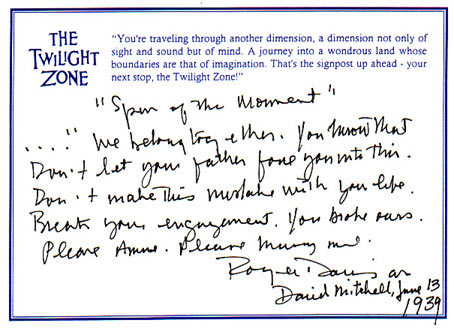 THE
TWILIGHT
ZONE
"You're traveling through another dimension, a dimension not only of
sight and sound but of mind. A journey into a wondrous land whose
boundaries are that of imagination. That's the signpost up ahead - your
next stop, the Twilight Zone!"
"Spur of the Moment"
...." We belong together. You know that
Don't let your father force you into this.
Don't make this mistake with your life.
Break your engagement. You broke ours.
Please Anne. Please marry me.
Roger Davis as
David Mitchell, June 13
1939